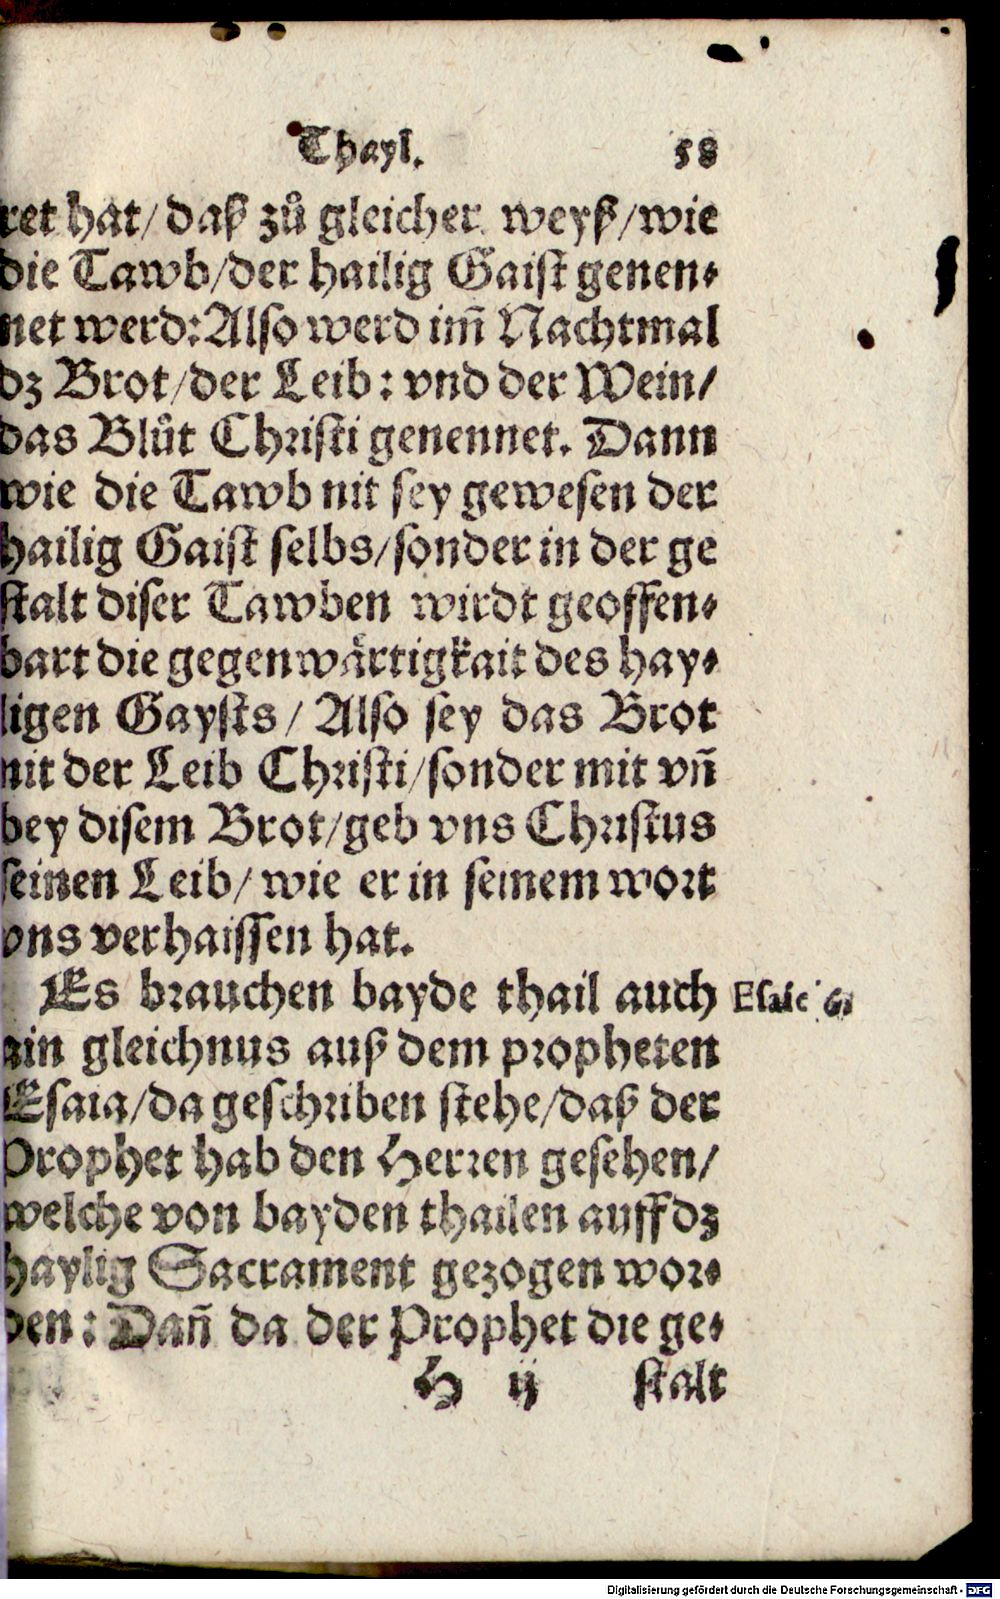 Thayl. 58
ret hat/ daß zů gleicher weyß/wie
die Tawb/der hailig Gaist genen⸗
net werd: Also werd im̃ Nachtmal
dz Brot/der Leib: vnd der Wein/
das Blůt Christi genennet. Dann
wie die Tawb nit sey gewesen der
hailig Gaist selbs/sonder in der ge
stalt diser Tawben wirdt geoffen⸗
bart die gegenwårtigkait des hay⸗
ligen Gaysts/ Also sey das Brot
nit der Leib Christi/sonder mit vñ
bey disem Brot/geb vns Christus
seinen Leib/ wie er in seinem wort
vns verhaissen hat.
Es brauchen bayde thail auch
Esaie 6.
ain gleichnus auß dem propheten
Esaia/da geschriben stehe/daß der
Prophet hab den Herren gesehen/
welche von bayden thailen auff dz
haylig Sacrament gezogen wor⸗
den: Dañ da der Prophet die ge⸗
H ij stalt
Digitalisierung gefördert durch die Deutsche Forschungsgemeinschaft - DFG